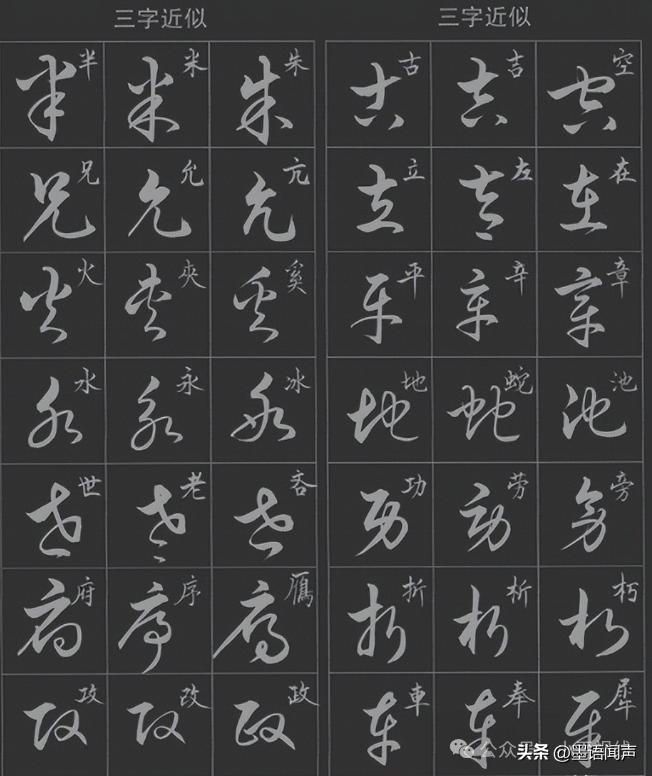 三字近似
半 米 朱
兄 允 亢
火 夾 奚
水 永 冰
世 老 吝
府 序 雁
攻 改 政
三字近似
古 吉 空
立 左 在
平 辛 章
地 蛇 池
功 劳 旁
折 析 朽
車 奉 犀
头条 @墨语闻声